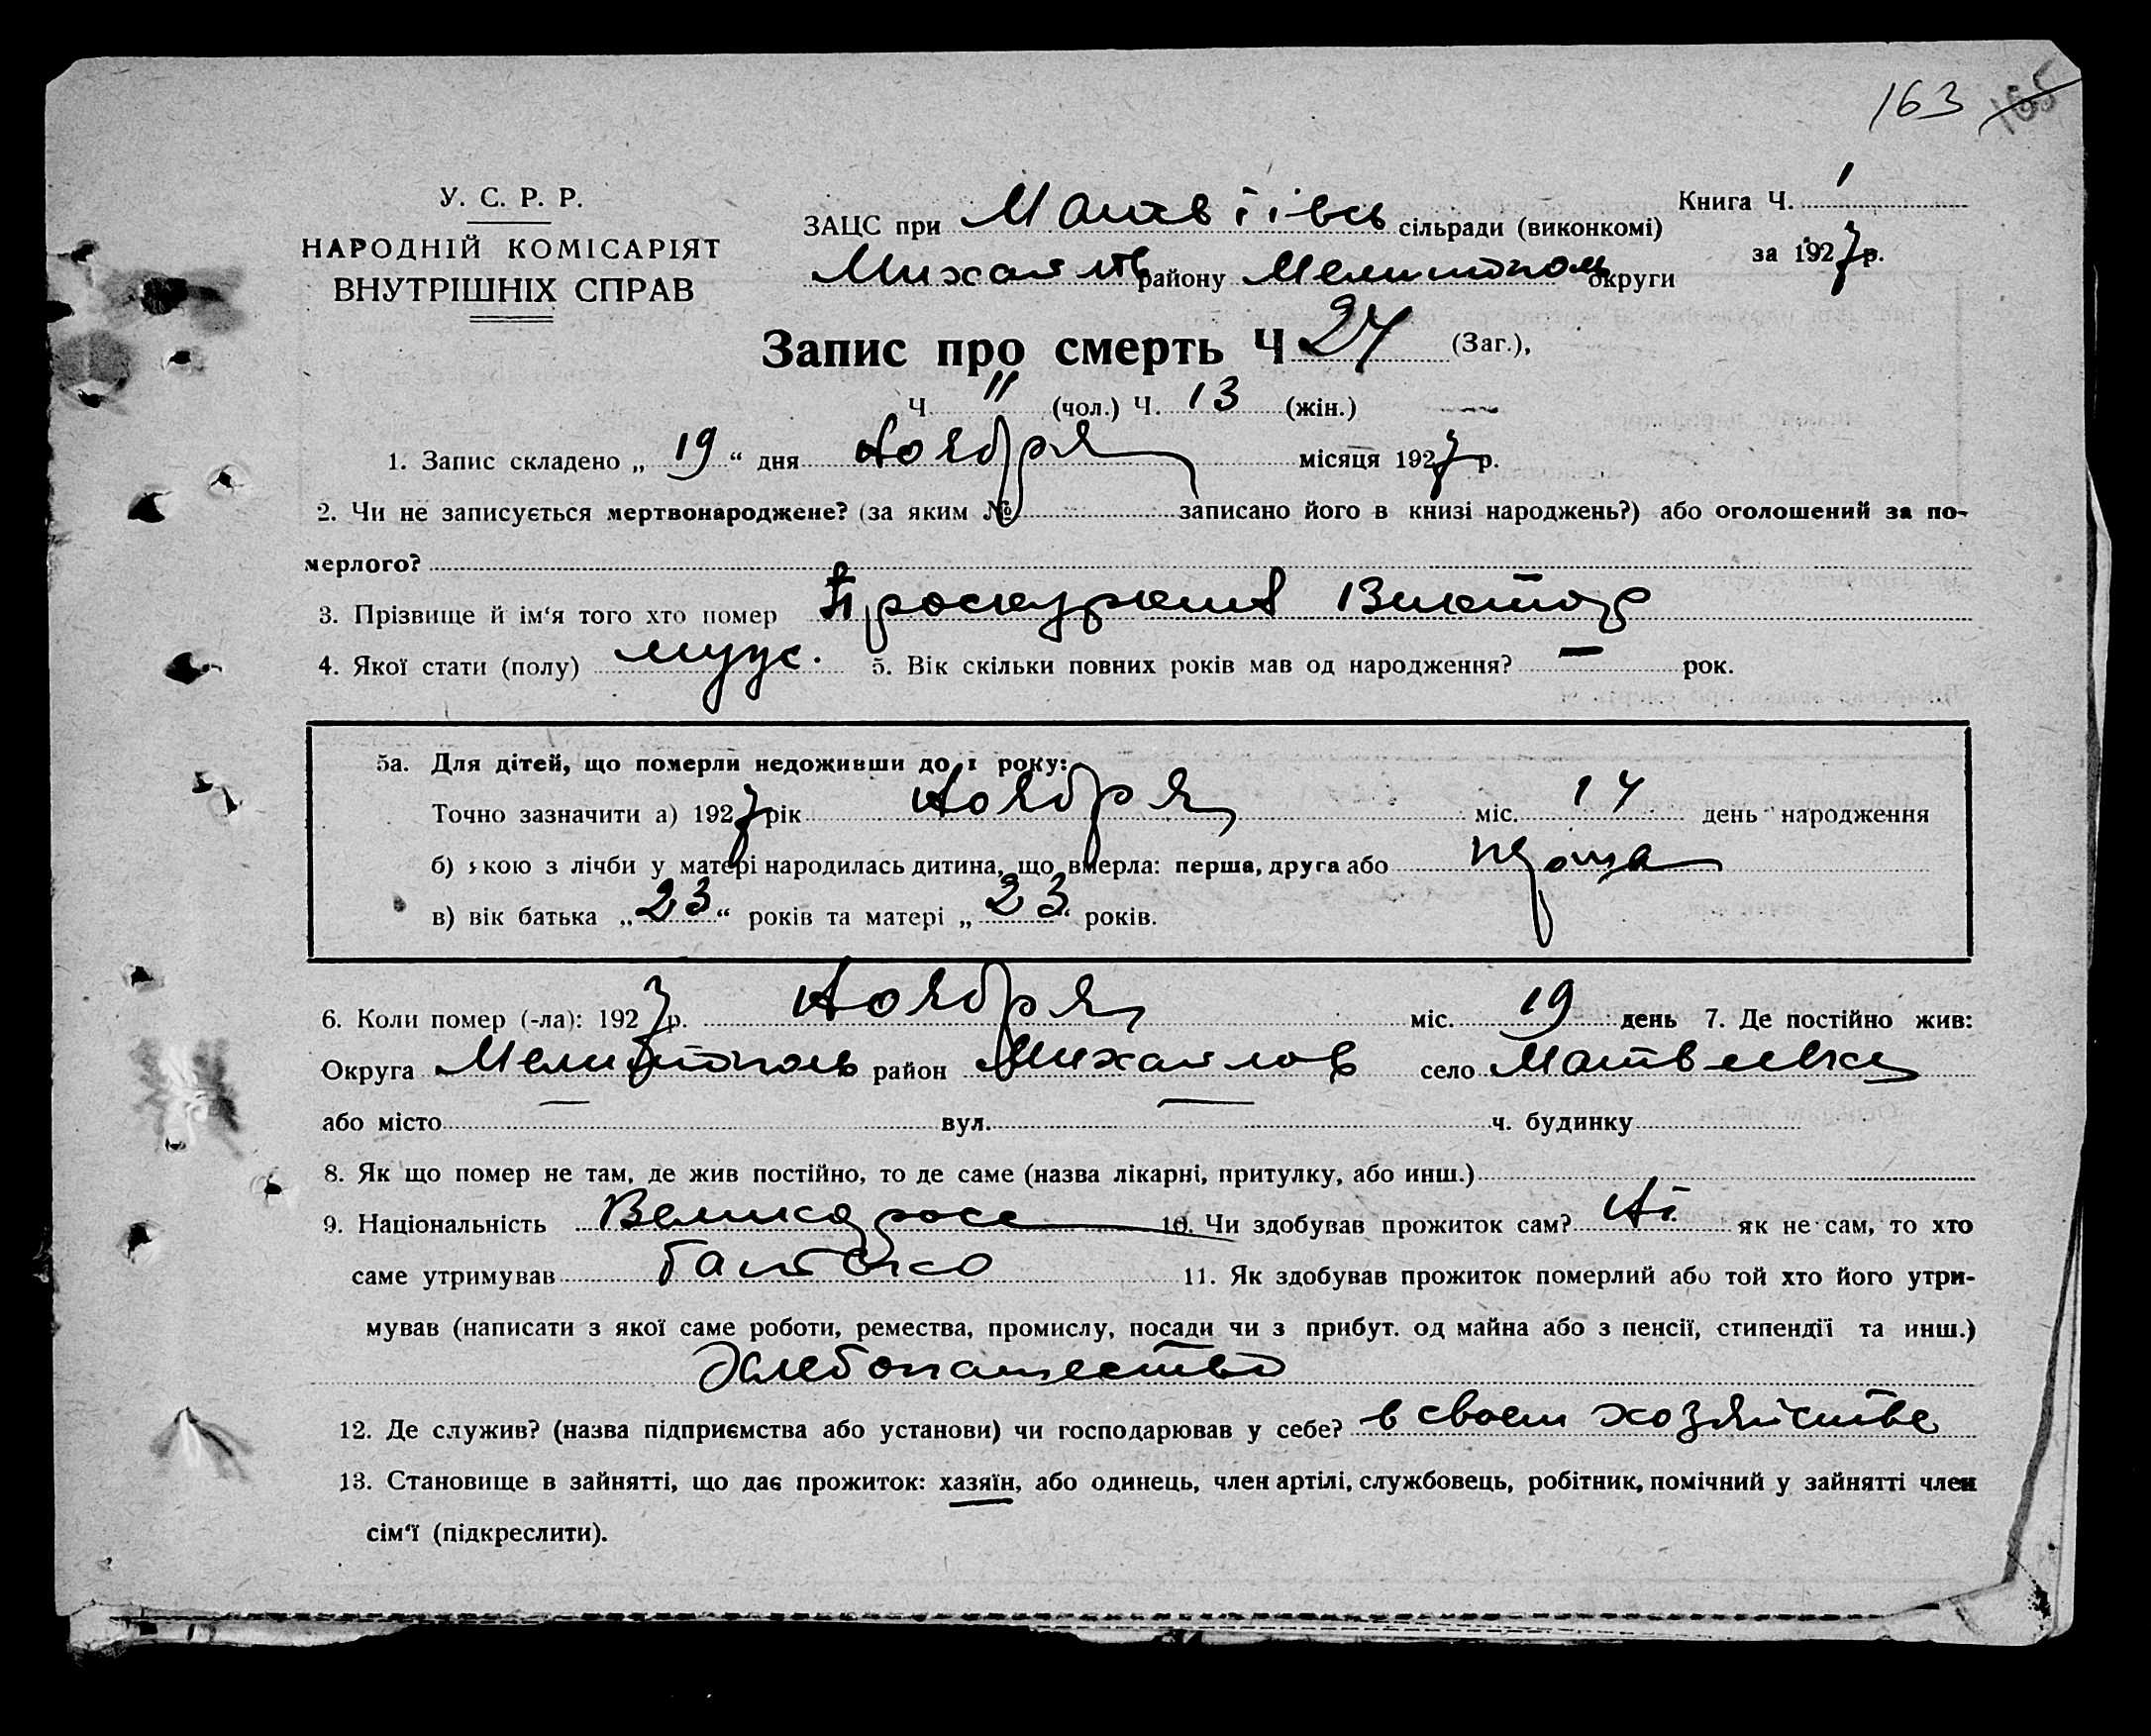 163 165
У. С. Р. Р.
НАРОДНІЙ КОМІСАРІЯТ
ВНУТРІШНІХ СПРАВ
ЗАЦС при Матвіівсь сільради (виконкомі)
Михайлів району Мелитополь округи
Книга Ч. 1
за 1927 р.
Запис про смерть Ч 24 (Заг.),
Ч. 11 (чол.) Ч. 13 (жін.)
1. Запис складено „ 19 “ дня Ноября місяця 1927 р.
2. Чи не записується мертвонароджене? (за яким № записано його в книзі народжень?) або оголошений за по-
мерлого?
3. Прізвище й ім‘я того хто помер Проскурина Виктор
4. Якої стати (полу) муж. 5. Вік скільки повних років мав од народження? — рок.
5а. Для дітей, що померли недоживши до 1 року:
Точно зазначити а) 1927 рік Ноября міс. 14 день народження
б) якою з лічби у матері народилась дитина, що вмерла: перша, друга або
в) вік батька „ 23 “ років та матері „ 23 “ років.
6. Коли помер (-ла): 1927 р. Ноября міс. 19 день 7. Де постійно жив:
Округа Мелитополь район Михайлов село Матвеевка
або місто — вул. — ч. будинку
8. Як що помер не там, де жив постійно, то де саме (назва лікарні, притулку, або инш.)
9. Національність Великоросс 10. Чи здобував прожиток сам? Ні як не сам, то хто
саме утримував батько 11. Як здобував прожиток померлий або той хто його утри-
мував (написати з якої саме роботи, ремества, промислу, посади чи з прибут. од майна або з пенсії, стипендії та инш.)
Хлебопашество
12. Де служив? (назва підприємства або установи) чи господарював у себе? в своем хозяйстве
13. Становище в зайнятті, що дає прожиток: хазяїн, або одинець, член артілі, службовець, робітник, помічний у зайнятті член
сім‘ї (підкреслити).